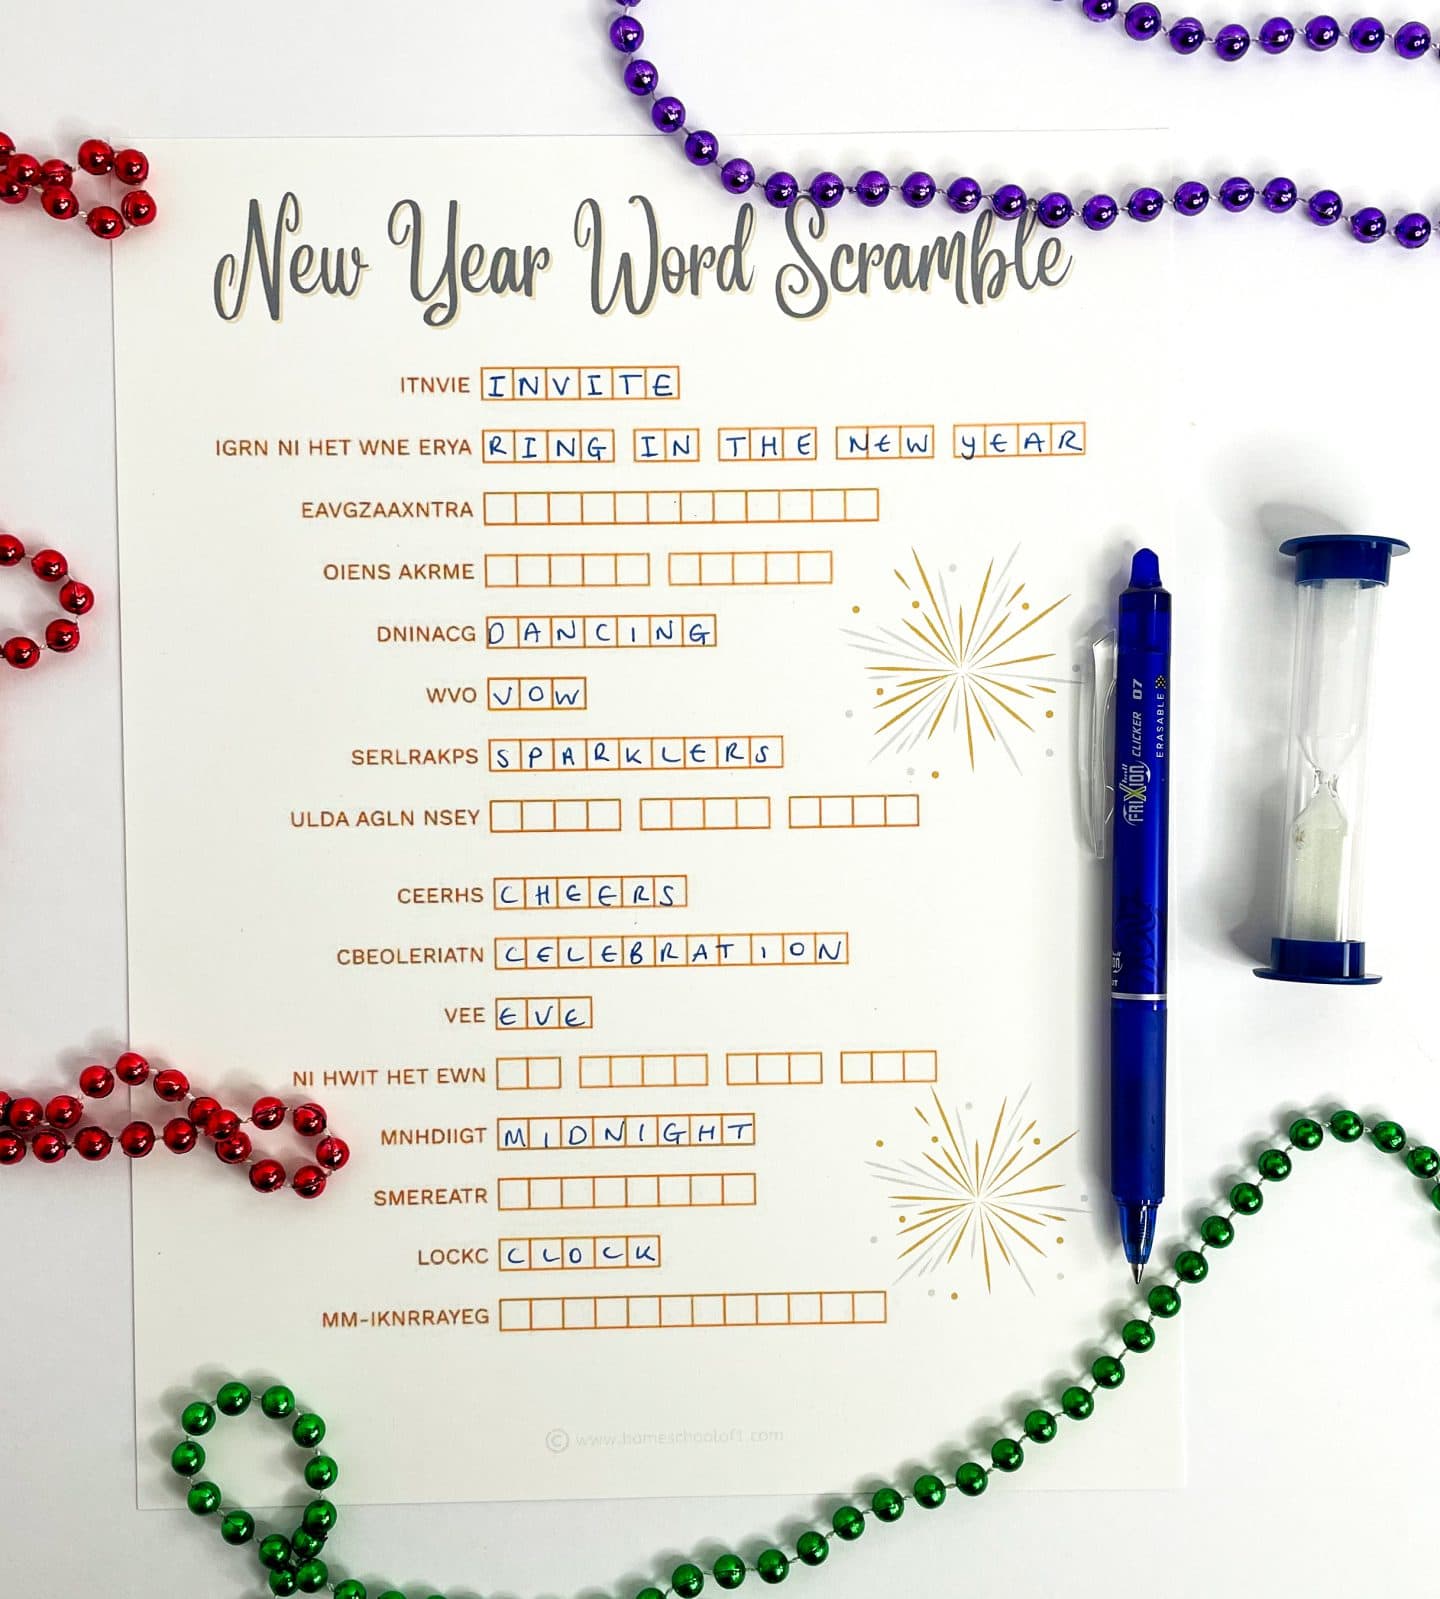 New Year Word Scramble
ITNVIE INVITE
IGRN NI HET WNE ERYA RING IN THE NEW YEAR
EAVGZAAXNTRA
OIENS AKRME
DNINACG DANCING
WVO VOW
SERLRAKPS SPARKLERS
ULDA AGLN NSEY
CEERHS CHEERS
CBEOLERIATN CELEBRATION
VEE EVE
NI HWIT HET EWN
MNHDIIGT MIDNIGHT
SMEREATR
LOCKC CLOCK
MM-IKNRRAYEG
© www.homeschoolof1.com
FRIXION CLICKER 07
ERASABLE